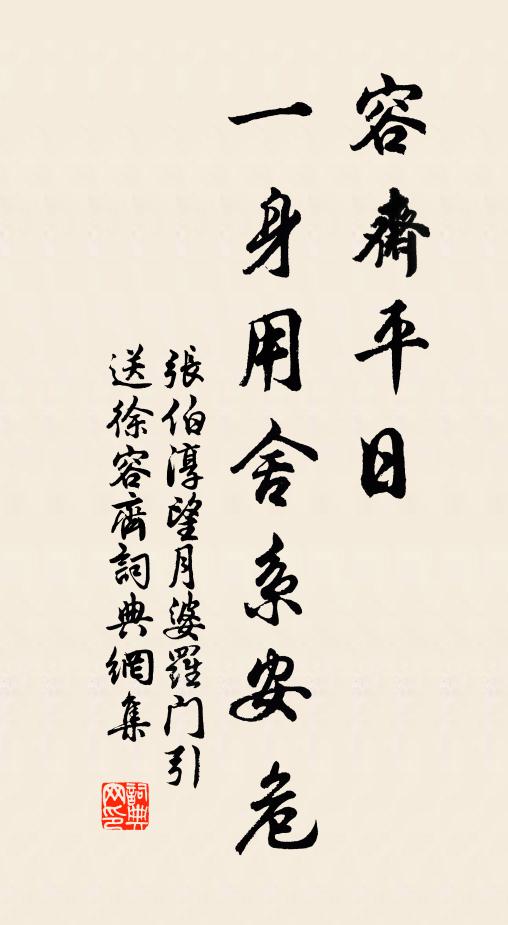 容齋平日
一身用舍系安危
張伯淳望月婆羅門引
送徐容齋詞典網集
詞典网印